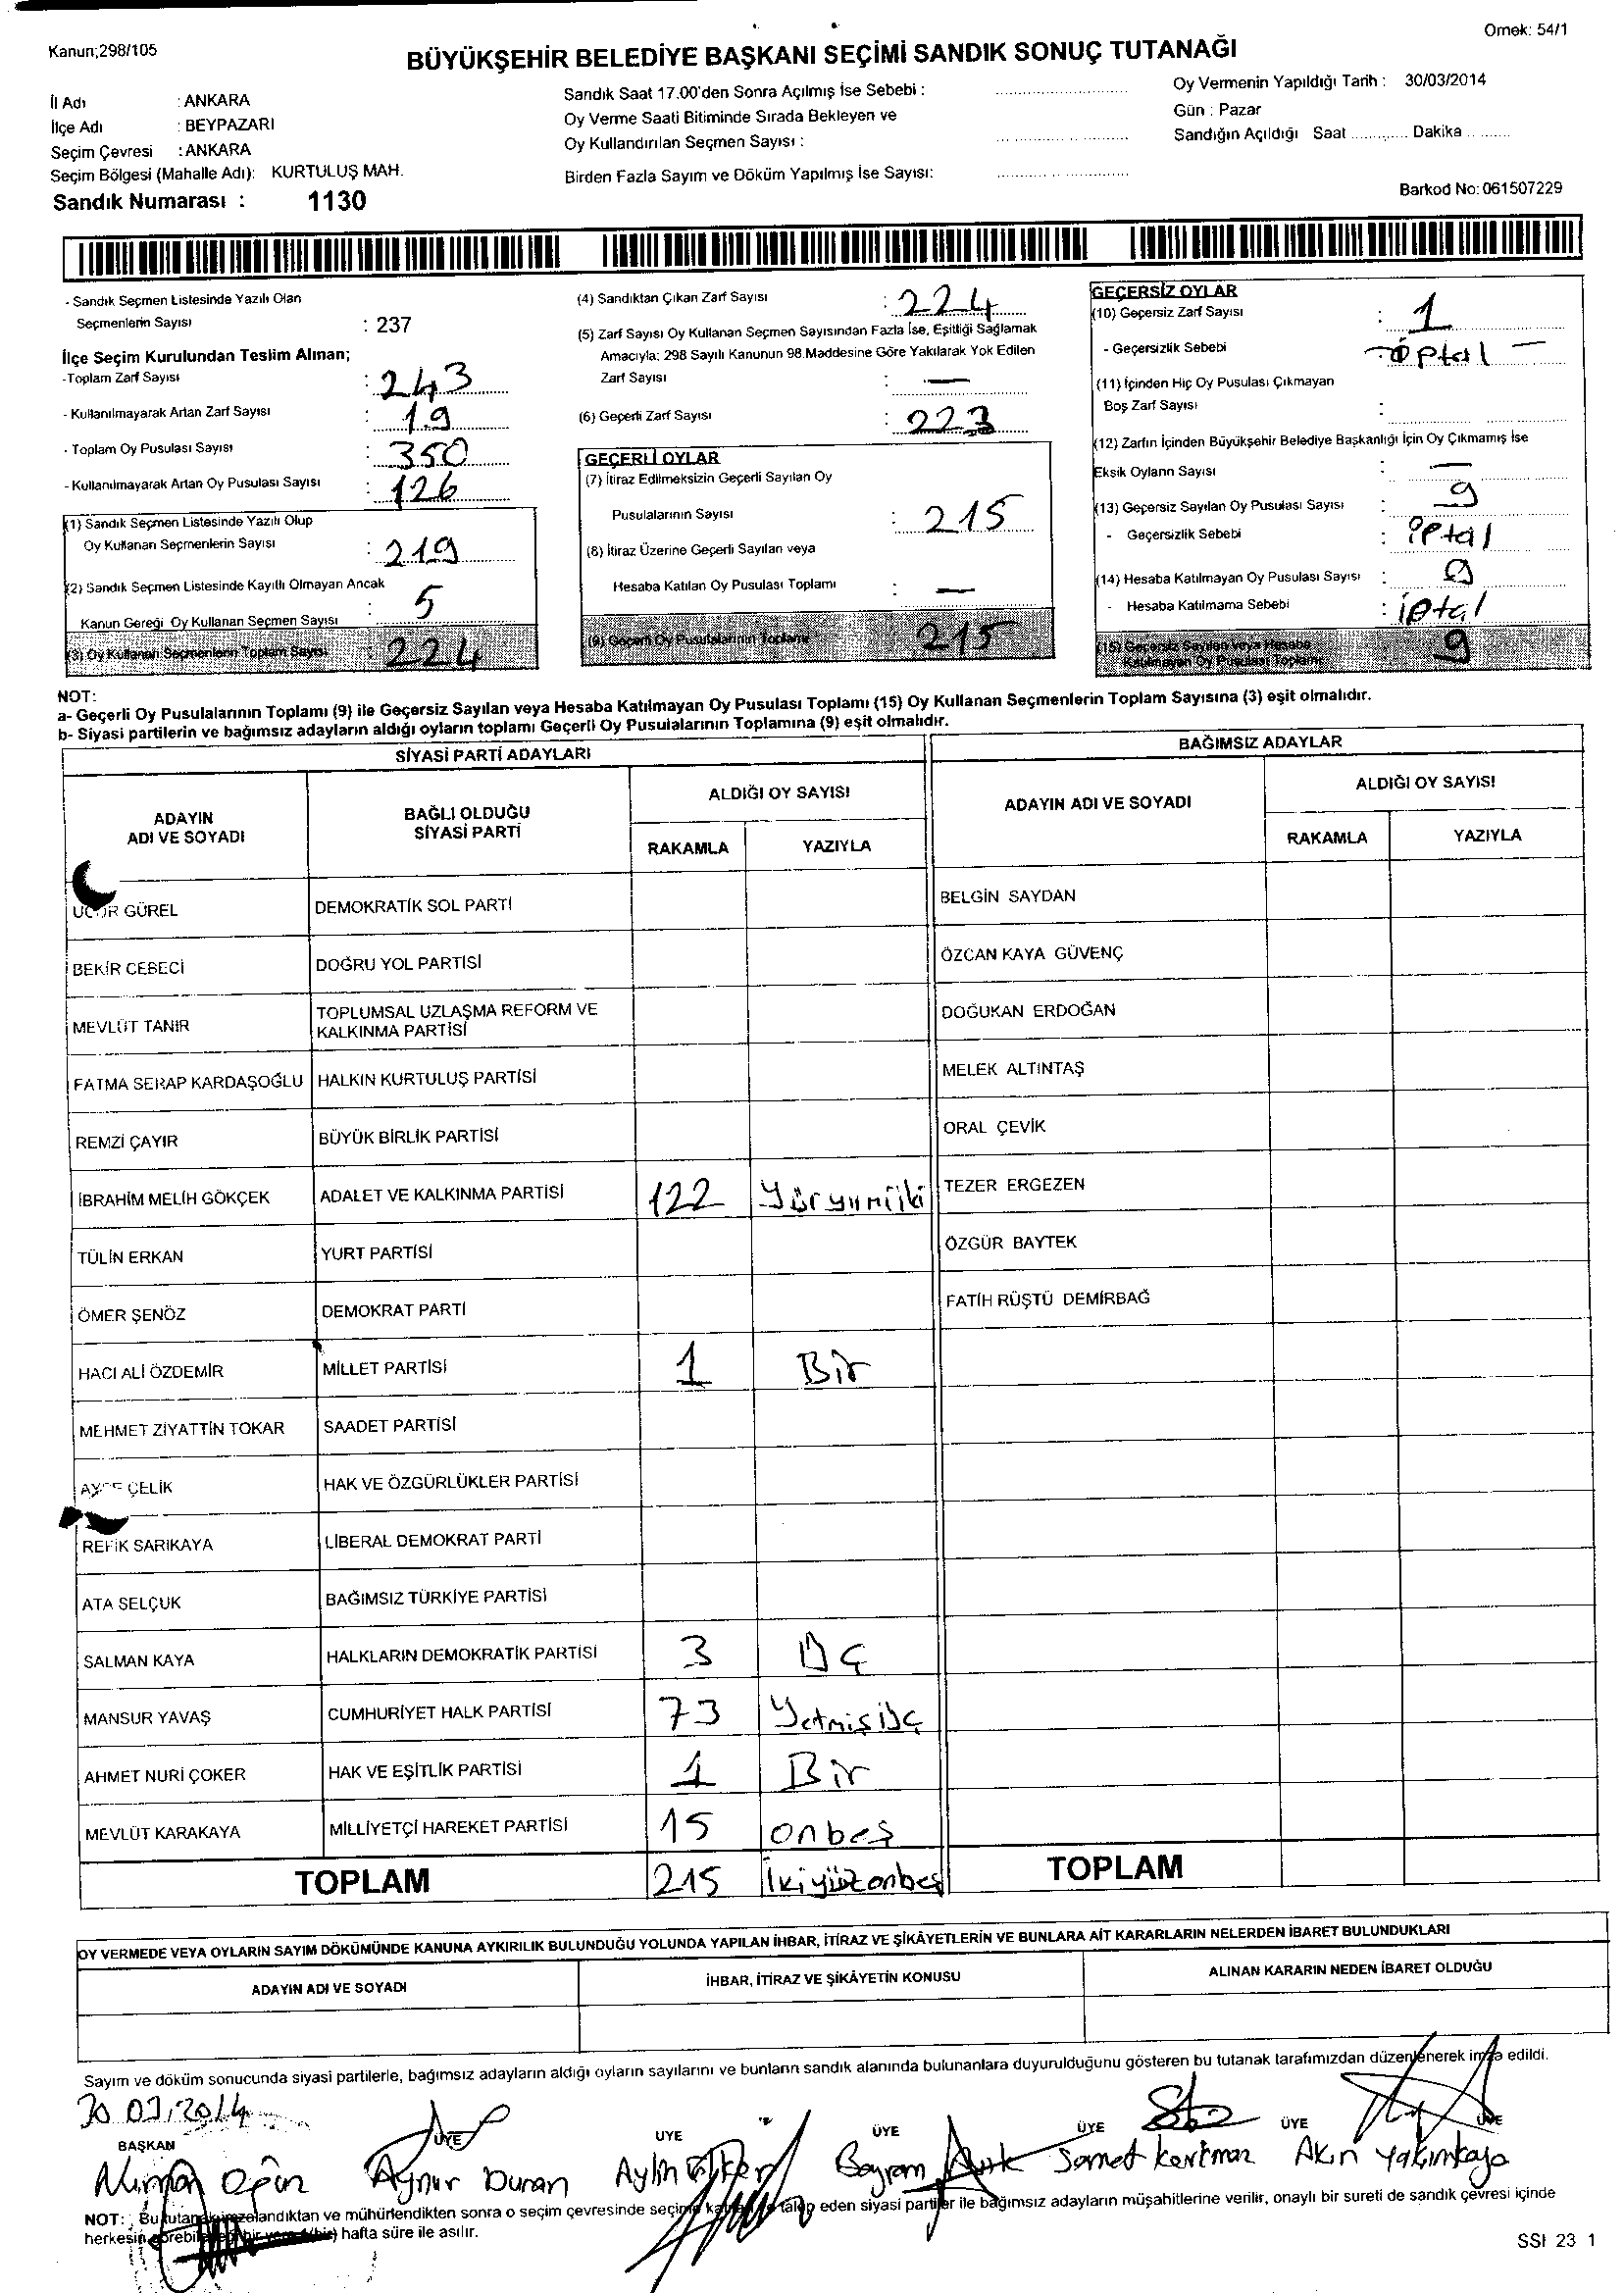 Kanun;298/105
Örnek: 54/1
BÜYÜKŞEHİR BELEDİYE BAŞKANI SEÇİMİ SANDIK SONUÇ TUTANAĞI
İl Adı : ANKARA
İlçe Adı : BEYPAZARI
Seçim Çevresi : ANKARA
Seçim Bölgesi (Mahalle Adı): KURTULUŞ MAH.
Sandık Numarası : 1130
Sandık Saat 17.00'den Sonra Açılmış İse Sebebi :
Oy Verme Saati Bitiminde Sırada Bekleyen ve
Oy Kullandırılan Seçmen Sayısı :
Birden Fazla Sayım ve Döküm Yapılmış İse Sayısı:
Oy Vermenin Yapıldığı Tarih : 30/03/2014
Gün : Pazar
Sandığın Açıldığı Saat ............ Dakika ..........
Barkod No: 061507229
- Sandık Seçmen Listesinde Yazılı Olan
Seçmenlerin Sayısı : 237
İlçe Seçim Kurulundan Teslim Alınan;
-Toplam Zarf Sayısı : 243
- Kullanılmayarak Artan Zarf Sayısı : 19
- Toplam Oy Pusulası Sayısı : 350
- Kullanılmayarak Artan Oy Pusulası Sayısı : 126
(1) Sandık Seçmen Listesinde Yazılı Olup
Oy Kullanan Seçmenlerin Sayısı : 219
(2) Sandık Seçmen Listesinde Kayıtlı Olmayan Ancak
Kanun Gereği Oy Kullanan Seçmen Sayısı : 5
(3) Oy Kullanan Seçmenlerin Toplam Sayısı 224
(4) Sandıktan Çıkan Zarf Sayısı : 224
(5) Zarf Sayısı Oy Kullanan Seçmen Sayısından Fazla İse, Eşitliği Sağlamak
Amacıyla; 298 Sayılı Kanunun 98.Maddesine Göre Yakılarak Yok Edilen
Zarf Sayısı : —
(6) Geçerli Zarf Sayısı : 223
GEÇERLİ OYLAR
(7) İtiraz Edilmeksizin Geçerli Sayılan Oy
Pusulalarının Sayısı : 215
(8) İtiraz Üzerine Geçerli Sayılan veya
Hesaba Katılan Oy Pusulası Toplamı : —
(9) Geçerli Oy Pusulalarının Toplamı 215
GEÇERSİZ OYLAR
(10) Geçersiz Zarf Sayısı : 1
- Geçersizlik Sebebi : iptal —
(11) İçinden Hiç Oy Pusulası Çıkmayan
Boş Zarf Sayısı :
(12) Zarfın İçinden Büyükşehir Belediye Başkanlığı İçin Oy Çıkmamış İse
Eksik Oyların Sayısı : —
(13) Geçersiz Sayılan Oy Pusulası Sayısı : 9
- Geçersizlik Sebebi : iptal
(14) Hesaba Katılmayan Oy Pusulası Sayısı : 9
- Hesaba Katılmama Sebebi : iptal
(15) Geçersiz Sayılan veya Hesaba
Katılmayan Oy Pusulası Toplamı 9
NOT:
a- Geçerli Oy Pusulalarının Toplamı (9) ile Geçersiz Sayılan veya Hesaba Katılmayan Oy Pusulası Toplamı (15) Oy Kullanan Seçmenlerin Toplam Sayısına (3) eşit olmalıdır.
b- Siyasi partilerin ve bağımsız adayların aldığı oyların toplamı Geçerli Oy Pusulalarının Toplamına (9) eşit olmalıdır.
SİYASİ PARTİ ADAYLARI
ADAYIN ADI VE SOYADI
BAĞLI OLDUĞU SİYASİ PARTİ
ALDIĞI OY SAYISI
RAKAMLA YAZIYLA
UĞUR GÜREL DEMOKRATİK SOL PARTİ
BEKİR CEBECİ DOĞRU YOL PARTİSİ
MEVLÜT TANIR TOPLUMSAL UZLAŞMA REFORM VE
KALKINMA PARTİSİ
FATMA SERAP KARDAŞOĞLU HALKIN KURTULUŞ PARTİSİ
REMZİ ÇAYIR BÜYÜK BİRLİK PARTİSİ
İBRAHİM MELİH GÖKÇEK ADALET VE KALKINMA PARTİSİ 122
TÜLİN ERKAN YURT PARTİSİ
ÖMER ŞENÖZ DEMOKRAT PARTİ
HACI ALİ ÖZDEMİR MİLLET PARTİSİ 1 Bir
MEHMET ZİYATTİN TOKAR SAADET PARTİSİ
ÇELİK HAK VE ÖZGÜRLÜKLER PARTİSİ
REFİK SARIKAYA LİBERAL DEMOKRAT PARTİ
ATA SELÇUK BAĞIMSIZ TÜRKİYE PARTİSİ
SALMAN KAYA HALKLARIN DEMOKRATİK PARTİSİ 3 Üç
MANSUR YAVAŞ CUMHURİYET HALK PARTİSİ 73 Yetmişüç
AHMET NURİ ÇOKER HAK VE EŞİTLİK PARTİSİ 1 Bir
MEVLÜT KARAKAYA MİLLİYETÇİ HAREKET PARTİSİ 15 onbeş
TOPLAM 215 İkiyüzonbeş
BAĞIMSIZ ADAYLAR
ADAYIN ADI VE SOYADI
ALDIĞI OY SAYISI
RAKAMLA YAZIYLA
BELGİN SAYDAN
ÖZCAN KAYA GÜVENÇ
DOĞUKAN ERDOĞAN
MELEK ALTINTAŞ
ORAL ÇEVİK
TEZER ERGEZEN
ÖZGÜR BAYTEK
FATİH RÜŞTÜ DEMİRBAĞ
TOPLAM
OY VERMEDE VEYA OYLARIN SAYIM DÖKÜMÜNDE KANUNA AYKIRILIK BULUNDUĞU YOLUNDA YAPILAN İHBAR, İTİRAZ VE ŞİKÂYETLERİN VE BUNLARA AİT KARARLARIN NELERDEN İBARET BULUNDUKLARI
ADAYIN ADI VE SOYADI İHBAR, İTİRAZ VE ŞİKÂYETİN KONUSU ALINAN KARARIN NEDEN İBARET OLDUĞU
Sayım ve döküm sonucunda siyasi partilerle, bağımsız adayların aldığı oyların sayılarını ve bunların sandık alanında bulunanlara duyurulduğunu gösteren bu tutanak tarafımızdan düzenlenerek imza edildi.
30 03.2014
BAŞKAN ÜYE ÜYE ÜYE ÜYE ÜYE ÜYE
Aynur Duran Aylin Bayram Samet Akın
NOT: Bu tutanak imzalandıktan ve mühürlendikten sonra o seçim çevresinde seçime katılan ve talep eden siyasi partiler ile bağımsız adayların müşahitlerine verilir, onaylı bir sureti de sandık çevresi içinde
herkesin görebileceği bir yere 1(bir) hafta süre ile asılır.
SSI 23 1